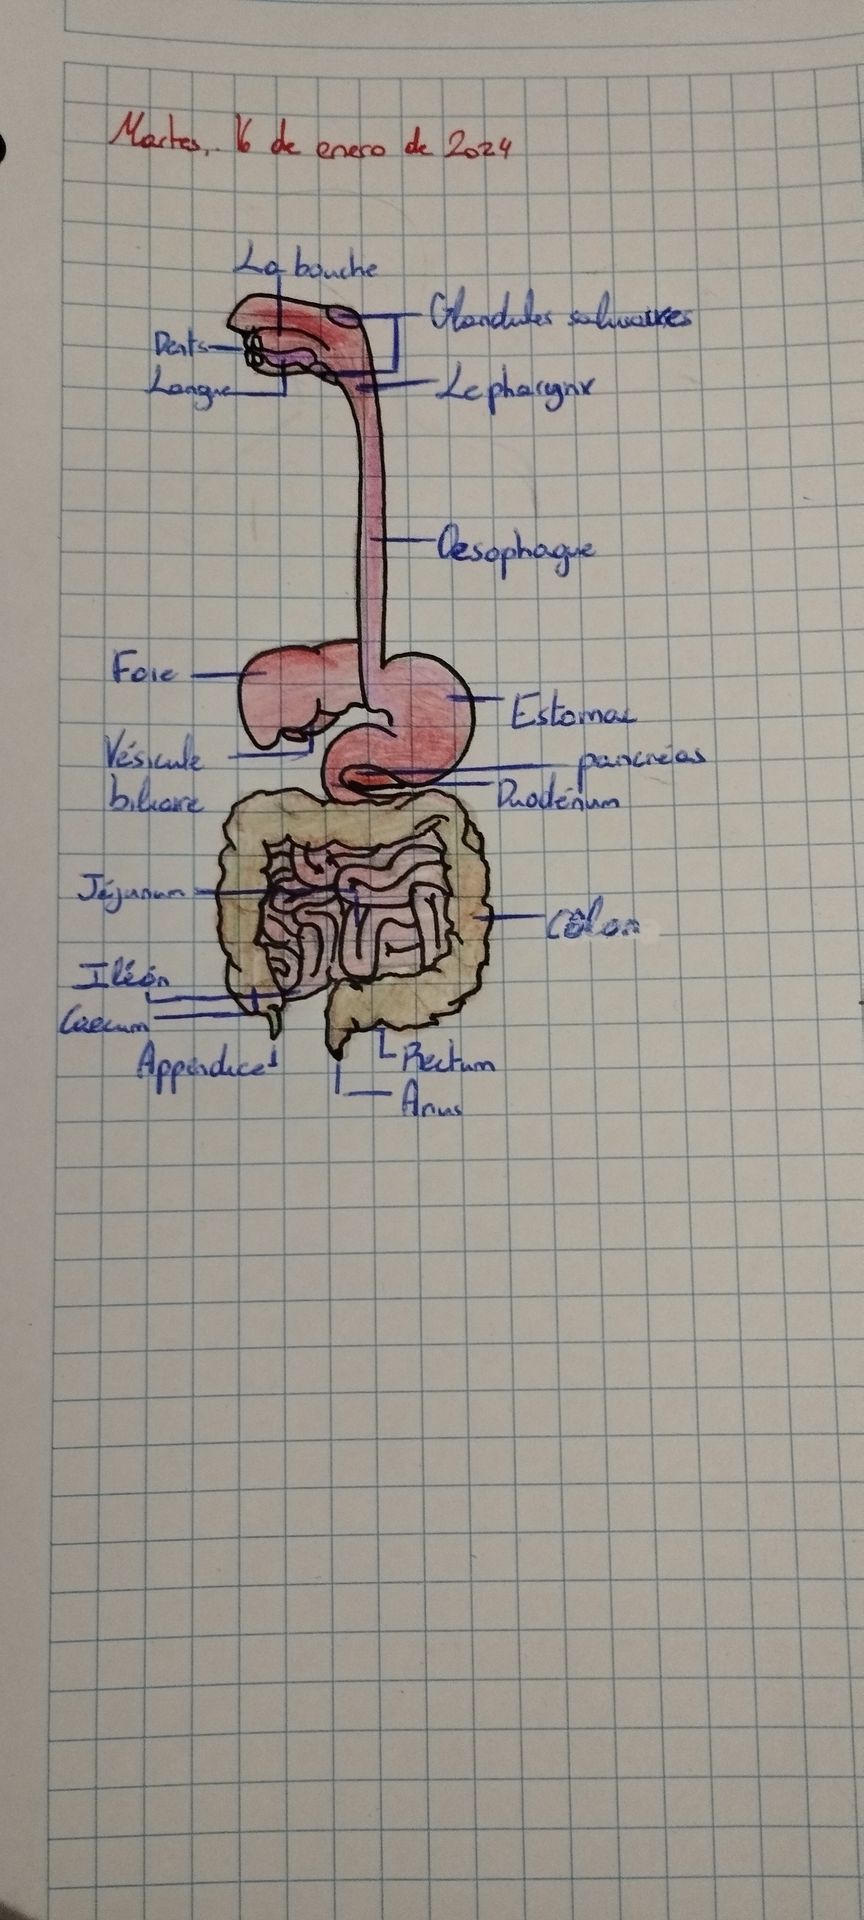 Martes, 16 de enero de 2024
La bouche
Glandules salivaires
Dents
Langue
Le pharynx
Oesophague
Foie
Estomac
Vésicule
biliare
pancréas
Duodénum
Jéjunum
Côlon
Iléón
Caecum
Appendice
Rectum
Anus